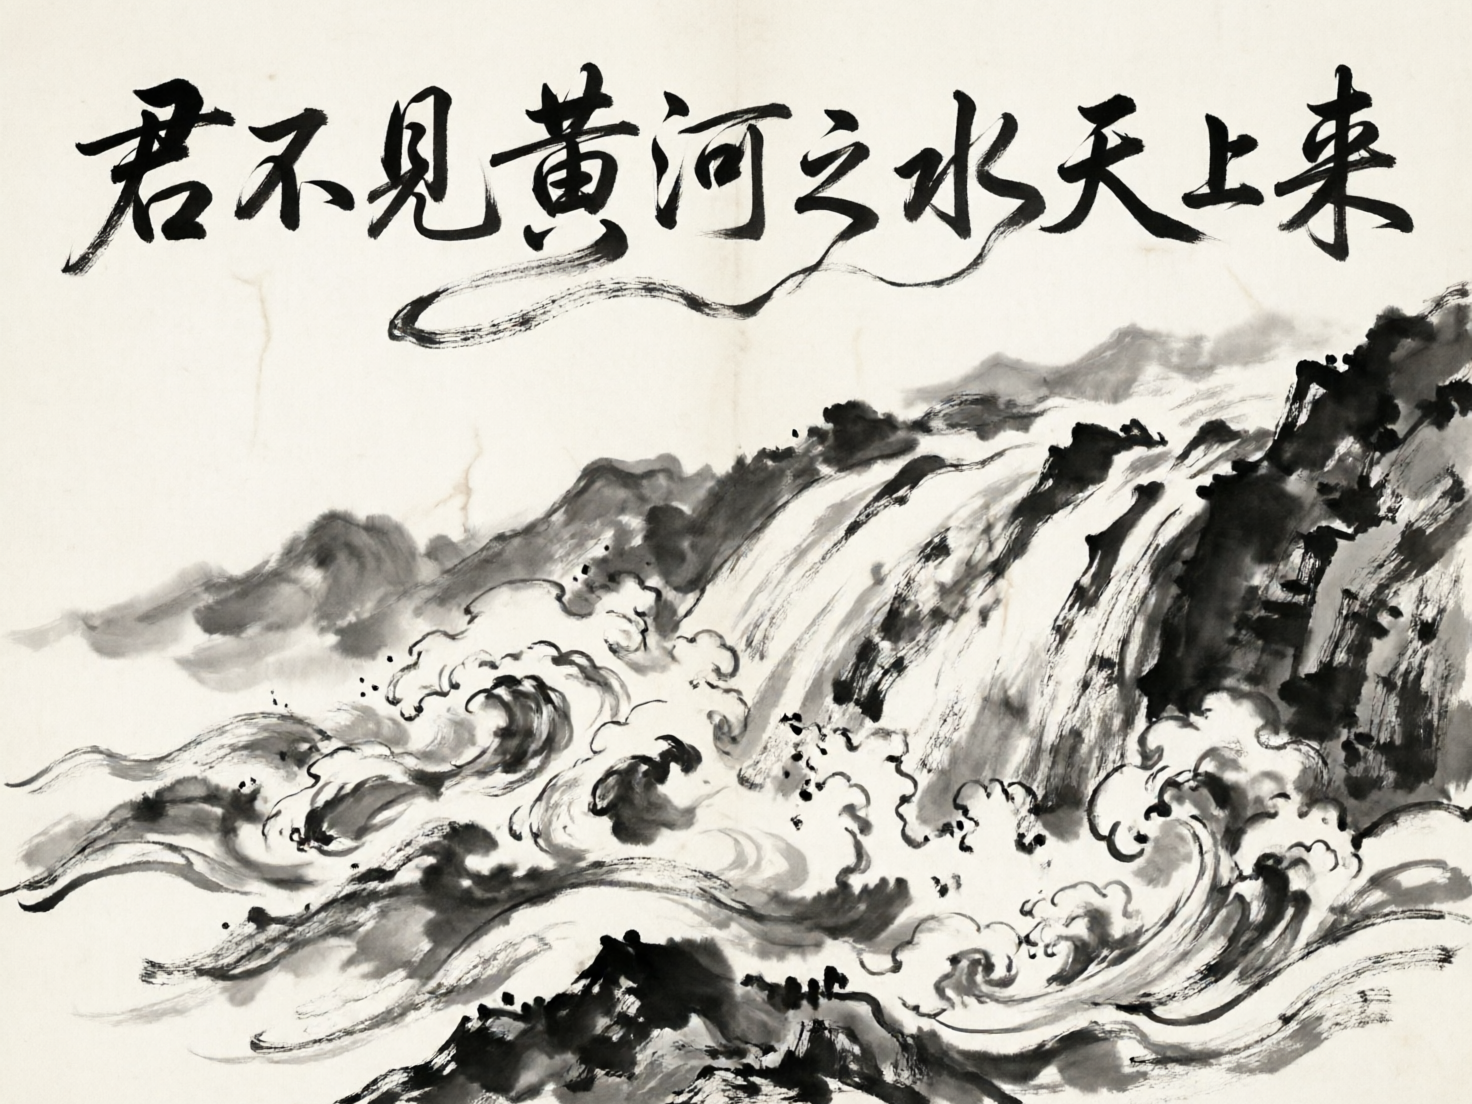 君不見黄河之水天上来